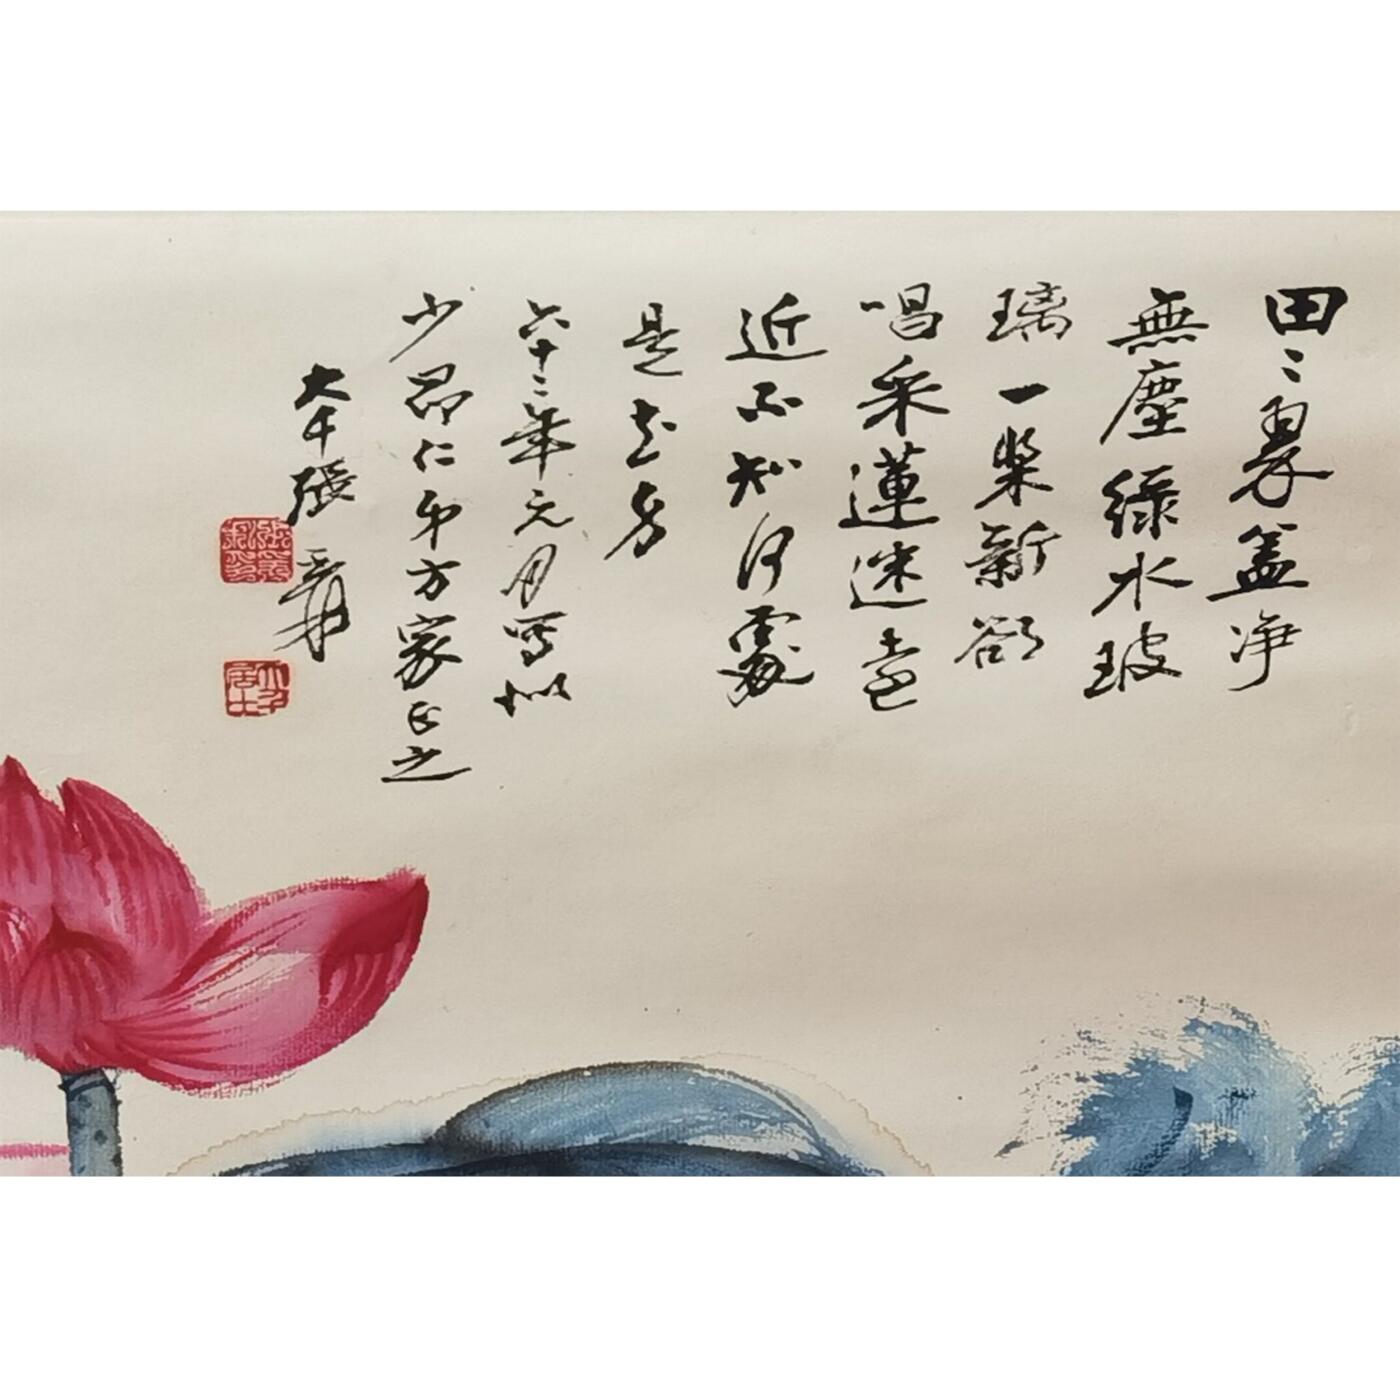 田〻翠盖净
無塵綠水玻
璃一槳新欲
唱采蓮迷遠
近不知何處
是
六十二年元月寫似
少昂仁弟方家正之
大千張爰
張爰私印
大千居士